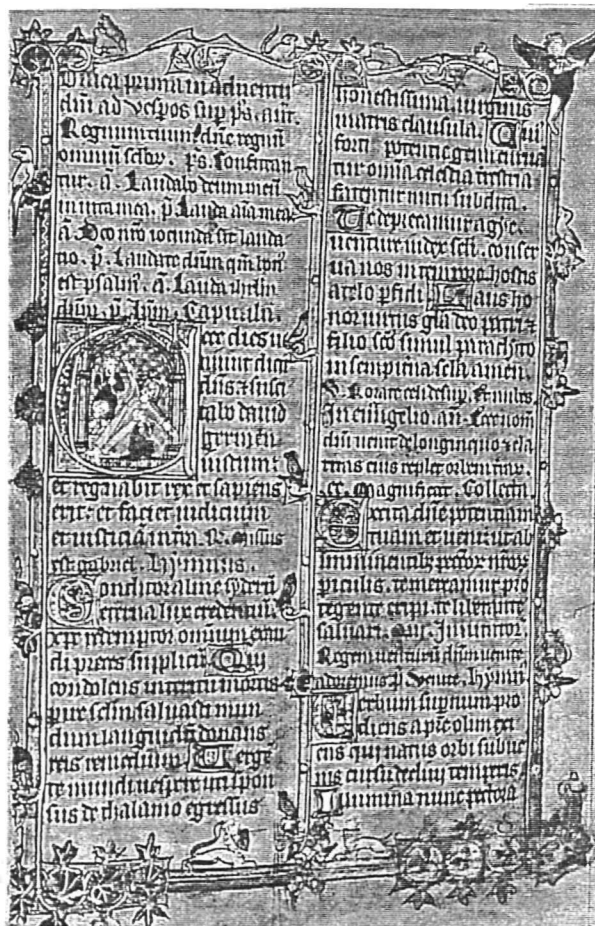 Dnica prima in aduentu
dni ad vespos sup ps. ant.
Regnum tuum dne regnu
omniu sclor. ps. Confitan
tur. a. Laudabo deum meu
in uita mea. p. Lauda aia mea
a. Deo nro iocunda sit lauda
tio. p. Laudate dnm qm bon
est psalm. a. Lauda ihrlm
dnm. p. Capitulu.
Ecce dies ue
niunt dicit
dns et susci
tabo dauid
germen
iustum:
et regnabit rex et sapiens
erit: et faciet iudicium
et iusticia in tra. R. Missus
est gabriel. hymnus.
Conditor alme syderu
eterna lux credentiu.
xpe redemptor omniu exau
di preces supplicu. Qui
condolens interitu mortis
pire sclm saluasti mun
dum languidu donans
reis remediu. Uerge
te mundi uespere uti spon
sus de thalamo egressus
honestissima. uirginis
matris clausula. Cui
forti potentie genu curua
tur omia celestia trestria
fatentur nutu subdita.
Te deprecamur agye
uenture iudex scli. conser
ua nos in tempore hostis
a telo pfidi. Laus ho
nor uirtus gla deo patri et
filio sco simul paraclito
in sempitna scla amen.
V. Rorate celi desup. et nubes.
In euugelio. an. Ecce nom
dni uenit de longinquo et cla
ritas eius replet orbem trar.
ps. Magnificat. Collecta.
Excita dne potentiam
tuam et ueni ut ab
iminentibz pctor nror
piculis. te mereamur pro
tegente eripi. te libente
saluari. Qui. Inuitator.
Regem uenturu dnm uenite
adoremus p. Uenite. hymn.
Uerbum supnum pro
diens a pre olim exi
ens qui natus orbi subue
nis cursu decliui temporis.
Illumina nunc pectora